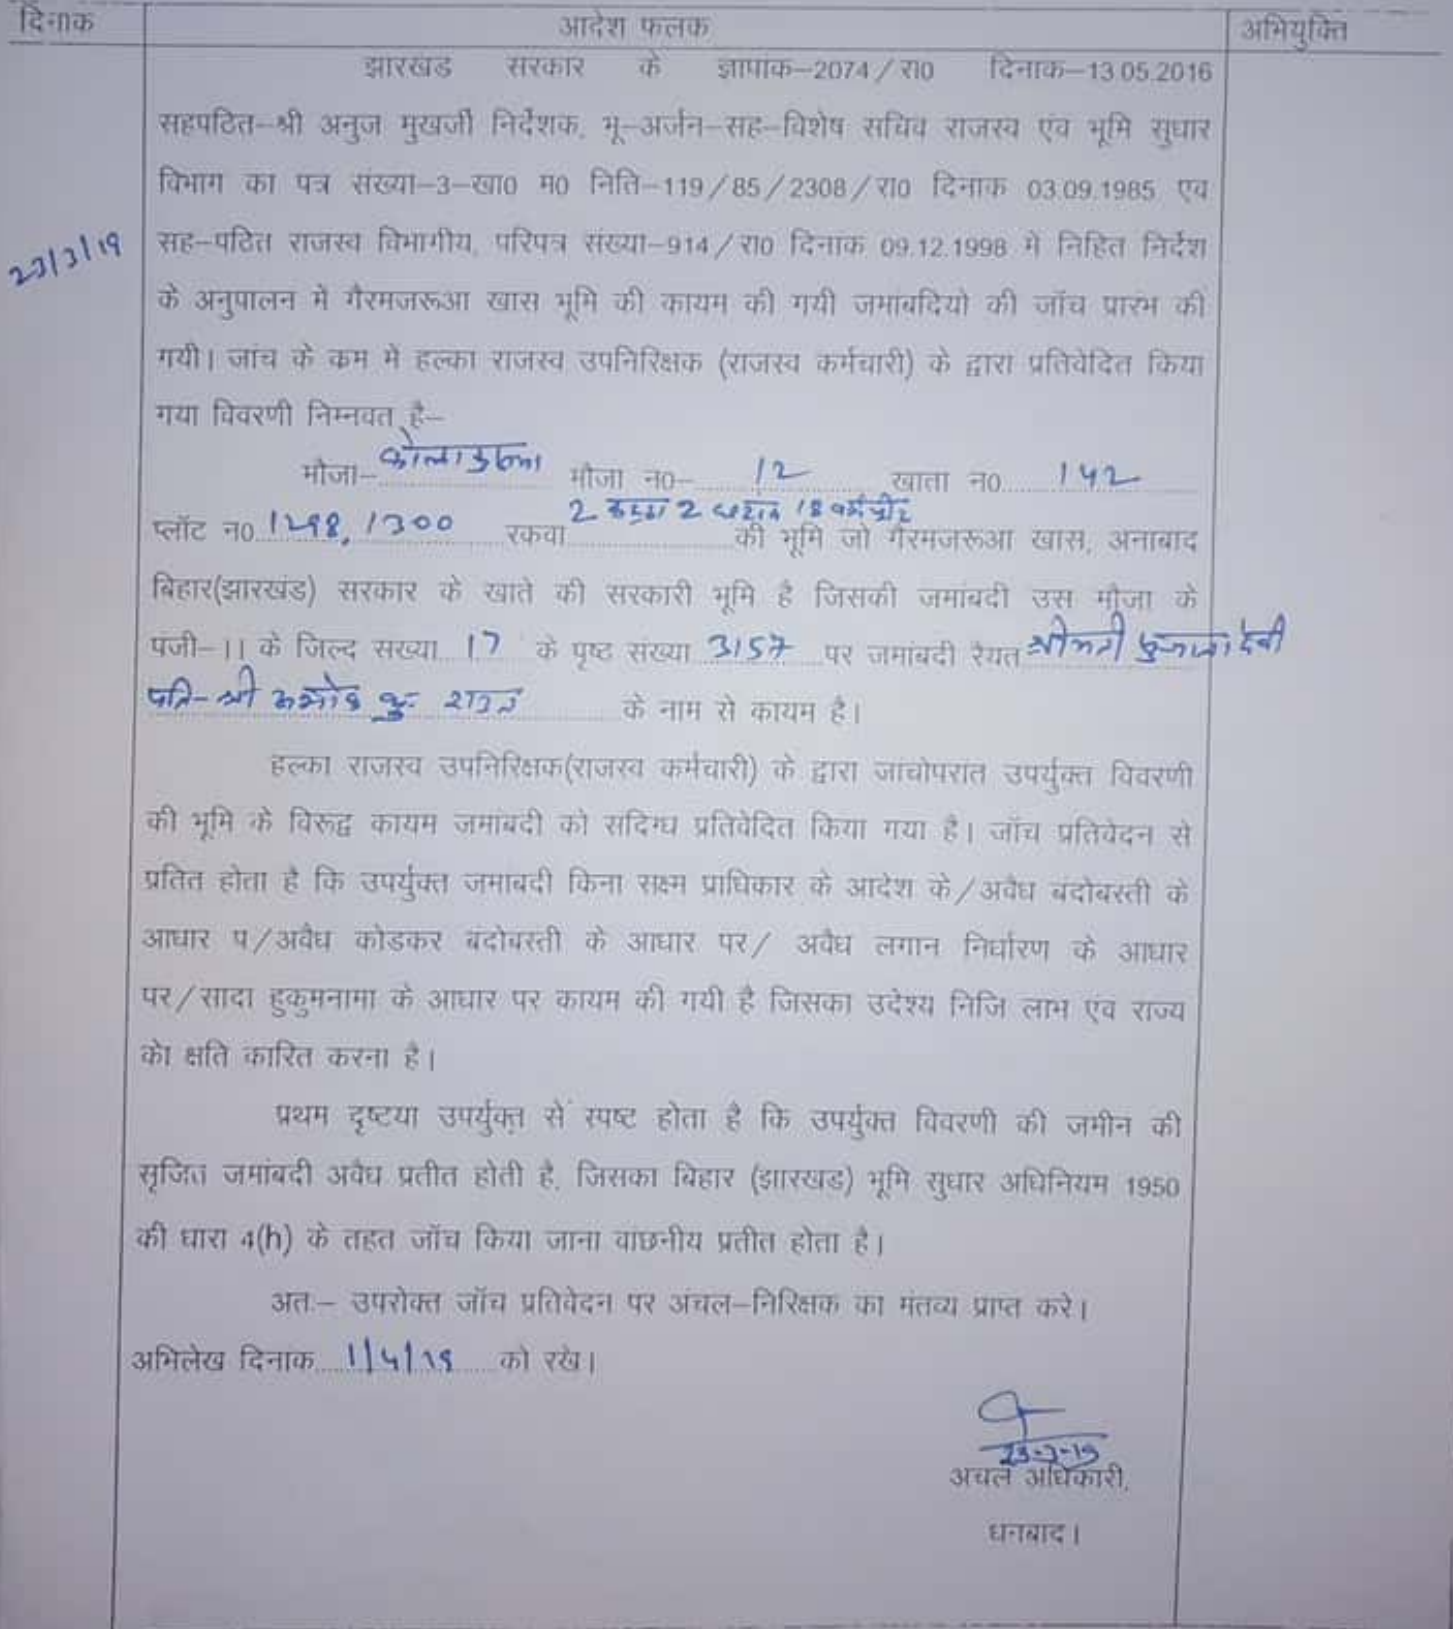 दिनाक आदेश फलक अभियुक्ति
झारखड सरकार के ज्ञापांक–2074/रा0 दिनाक–13.05.2016
सहपठित–श्री अनुज मुखर्जी निर्देशक, भू–अर्जन–सह–विशेष सचिव राजस्व एंव भूमि सुधार
विभाग का पत्र संख्या–3–खा0 म0 निति–119/85/2308/रा0 दिनाक 03.09.1985 एव
23/3/19
सह–पठित राजस्व विभागीय, परिपत्र संख्या–914/रा0 दिनांक 09.12.1998 में निहित निर्देश
के अनुपालन में गैरमजरूआ खास भूमि की कायम की गयी जमांबदियो की जॉच प्रारंभ की
गयी। जांच के कम में हल्का राजस्व उपनिरिक्षक (राजस्व कर्मचारी) के द्वारा प्रतिवेदित किया
गया विवरणी निम्नवत् है–
मौजा– मौजा न0– 12 खाता न0 142
प्लॉट न0 1298, 1300 रकवा 2 कट्ठा 2 छटाक 18 वर्गफीट की भूमि जो गैरमजरूआ खास, अनाबाद
बिहार(झारखंड) सरकार के खाते की सरकारी भूमि है जिसकी जमांबदी उस मौजा के
पंजी–।। के जिल्द सख्या 17 के पृष्ट संख्या 3157 पर जमांबदी रैयत श्रीमती देवी
पति– श्री कु॰ के नाम से कायम है।
हल्का राजस्व उपनिरिक्षक(राजस्व कर्मचारी) के द्वारा जाचोपरांत उपर्युक्त विवरणी
की भूमि के विरूद्ध कायम जमांबदी को संदिग्ध प्रतिवेदित किया गया है। जॉच प्रतिवेदन से
प्रतित होता है कि उपर्युक्त जमांबदी किना सक्ष्म प्राधिकार के आदेश के/अवैध बंदोबस्ती के
आधार प/अवैध कोडकर बंदोबस्ती के आधार पर/ अवैध लगान निर्धारण के आधार
पर/सादा हुकुमनामा के आधार पर कायम की गयी है जिसका उदेश्य निजि लाभ एंव राज्य
को क्षति कारित करना है।
प्रथम दृष्टया उपर्युक्त से स्पष्ट होता है कि उपर्युक्त विवरणी की जमीन की
सृजित जमांबदी अवैध प्रतीत होती है, जिसका बिहार (झारखड) भूमि सुधार अधिनियम 1950
की धारा 4(h) के तहत जॉच किया जाना वांछनीय प्रतीत होता है।
अत– उपरोक्त जॉच प्रतिवेदन पर अंचल–निरिक्षक का मंतव्य प्राप्त करे।
अभिलेख दिनाक 1/4/19 को रखे।
23-3-19
अचल अधिकारी,
धनबाद।